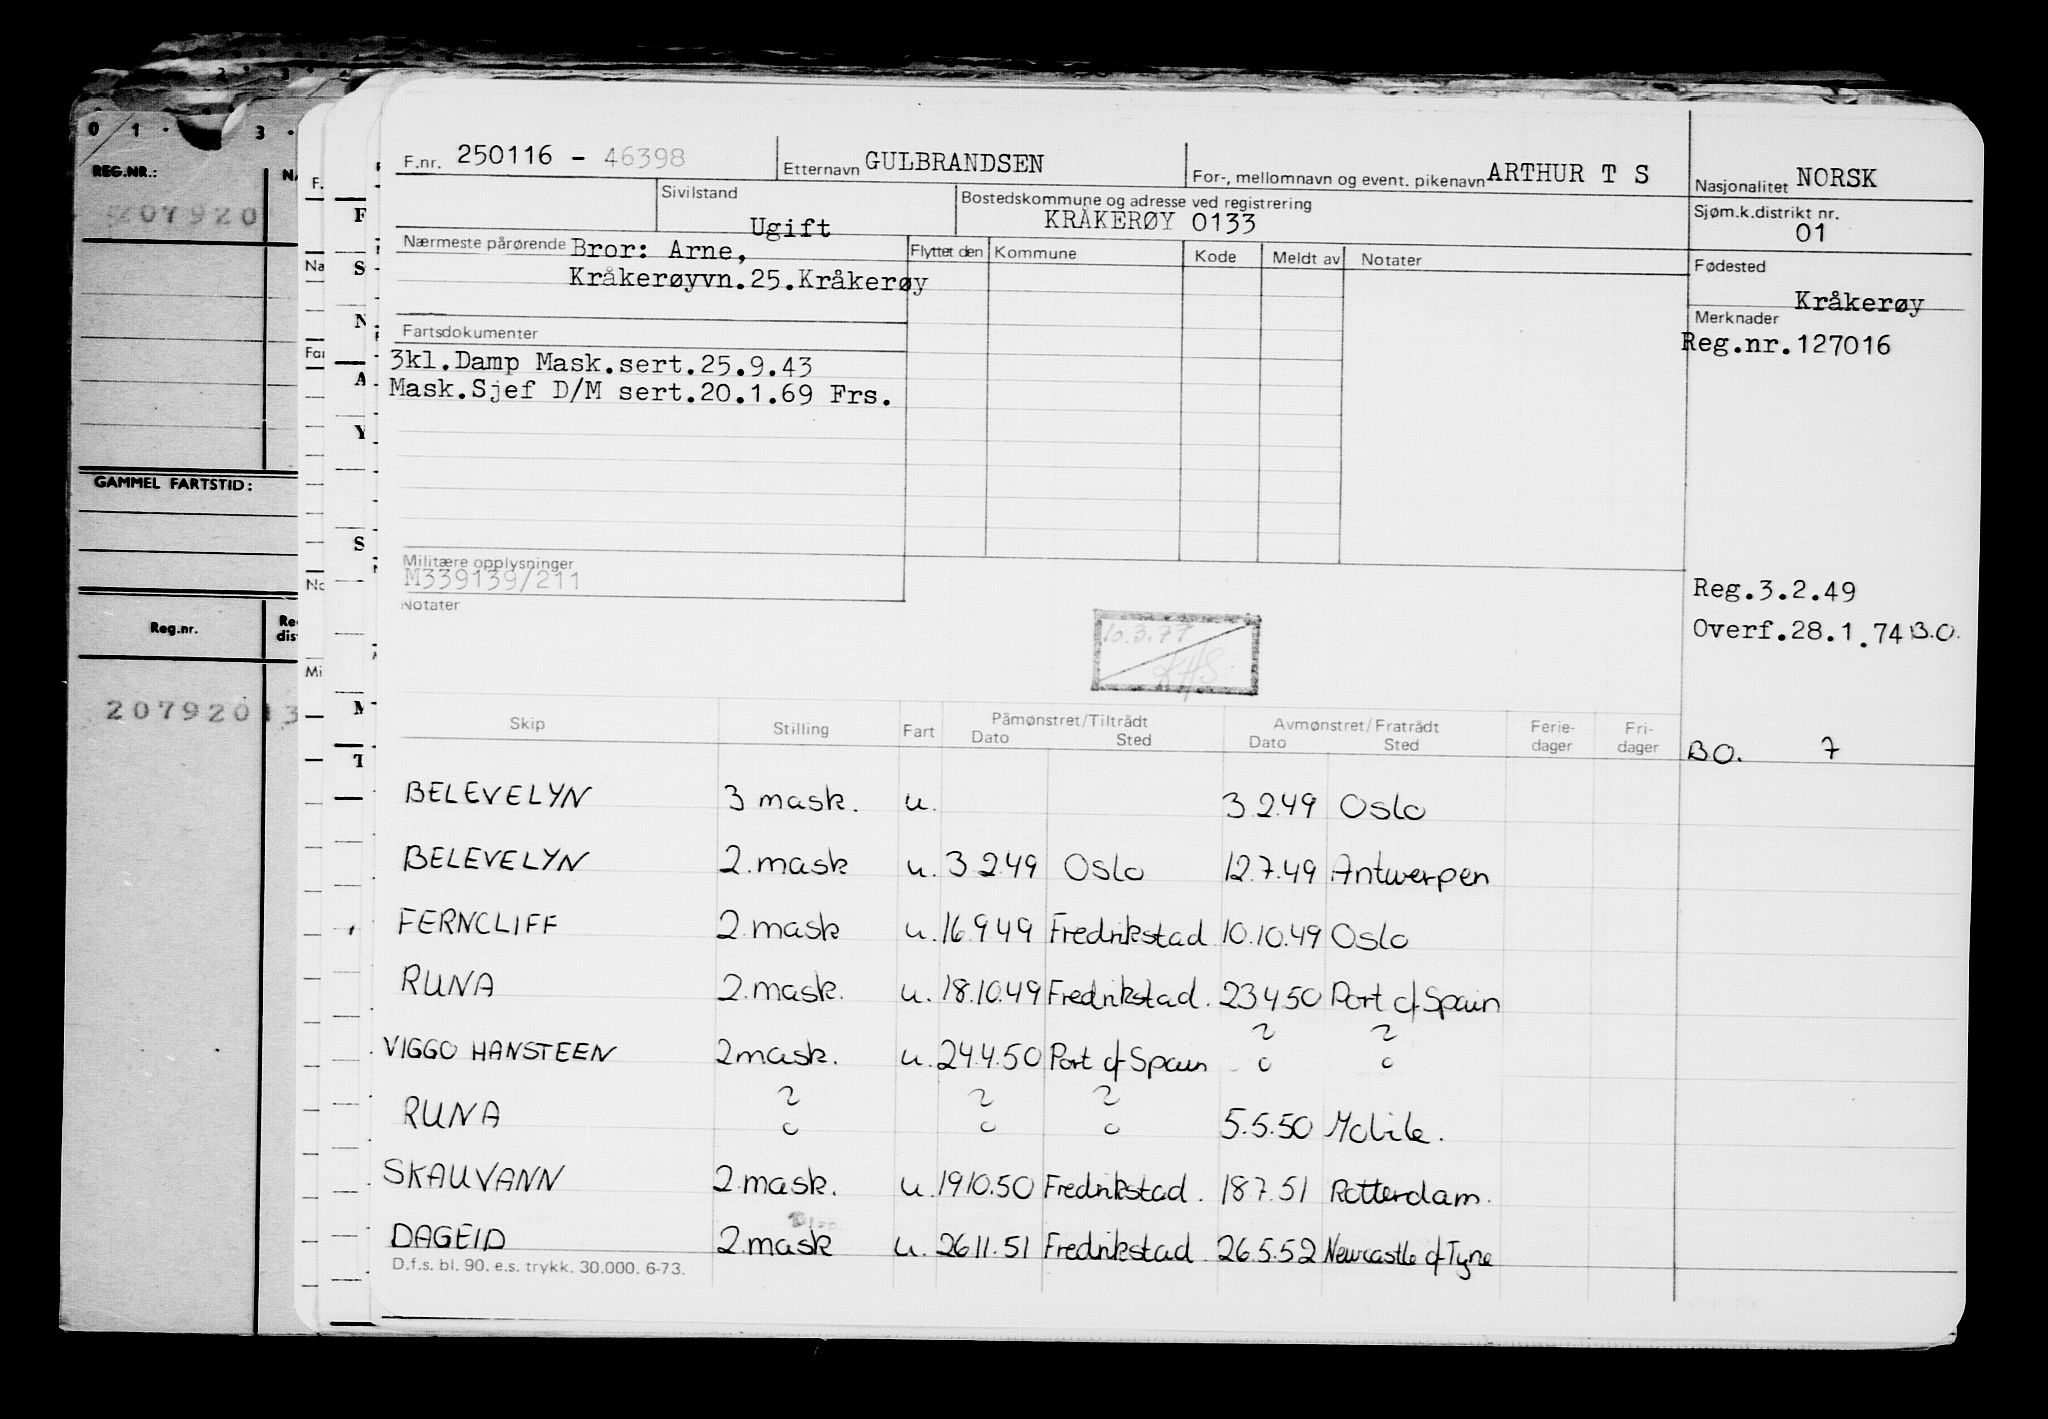 F.nr. 250116 - 46398 Etternavn GULBRANDSEN For-, mellomnavn og event. pikenavn ARTHUR T S Nasjonalitet NORSK
Sivilstand Ugift Bostedskommune og adresse ved registrering KRÅKERØY 0133 Sjøm.k.distrikt nr. 01
Nærmeste pårørende Bror: Arne,
Kråkerøyvn.25.Kråkerøy
Flyttet den Kommune Kode Meldt av Notater
Fødested
Kråkerøy
Fartsdokumenter
Merknader
Reg.nr.127016
3kl.Damp Mask.sert.25.9.43
Mask.Sjef D/M sert.20.1.69 Frs.
Militære opplysninger
M339139/211
Notater
Reg.3.2.49
Overf.28.1.74 B.O.
10.3.77
Skip Stilling Fart Påmønstret/Tiltrådt Dato Sted Avmønstret/Fratrådt Dato Sted Ferie-dager Fri-dager
BO. 7
BELEVELYN 3 mask. u. 3.2.49 Oslo
BELEVELYN 2.mask u. 3 2.49 Oslo 12.7.49 Antwerpen
FERNCLIFF 2.mask u. 16.9.49 Fredrikstad 10.10.49 Oslo
RUNA 2.mask. u. 18.10.49 Fredrikstad. 23.4.50 Port of Spain
VIGGO HANSTEEN 2mask. u. 24.4.50 Port of Spain ? ?
RUNA ? ? ? 5.5.50 Mobile.
SKAUVANN 2.mask. u. 19.10.50 Fredrikstad. 18.7.51 Rotterdam.
DAGEID 2.mask u. 26.11.51 Fredrikstad 26.5.52 Newcastle of Tyne
D.f.s. bl. 90. e.s. trykk. 30.000. 6-73.
0 1 · 3 ·
REG.NR.:
207920
GAMMEL FARTSTID:
Reg.nr.
207920 13